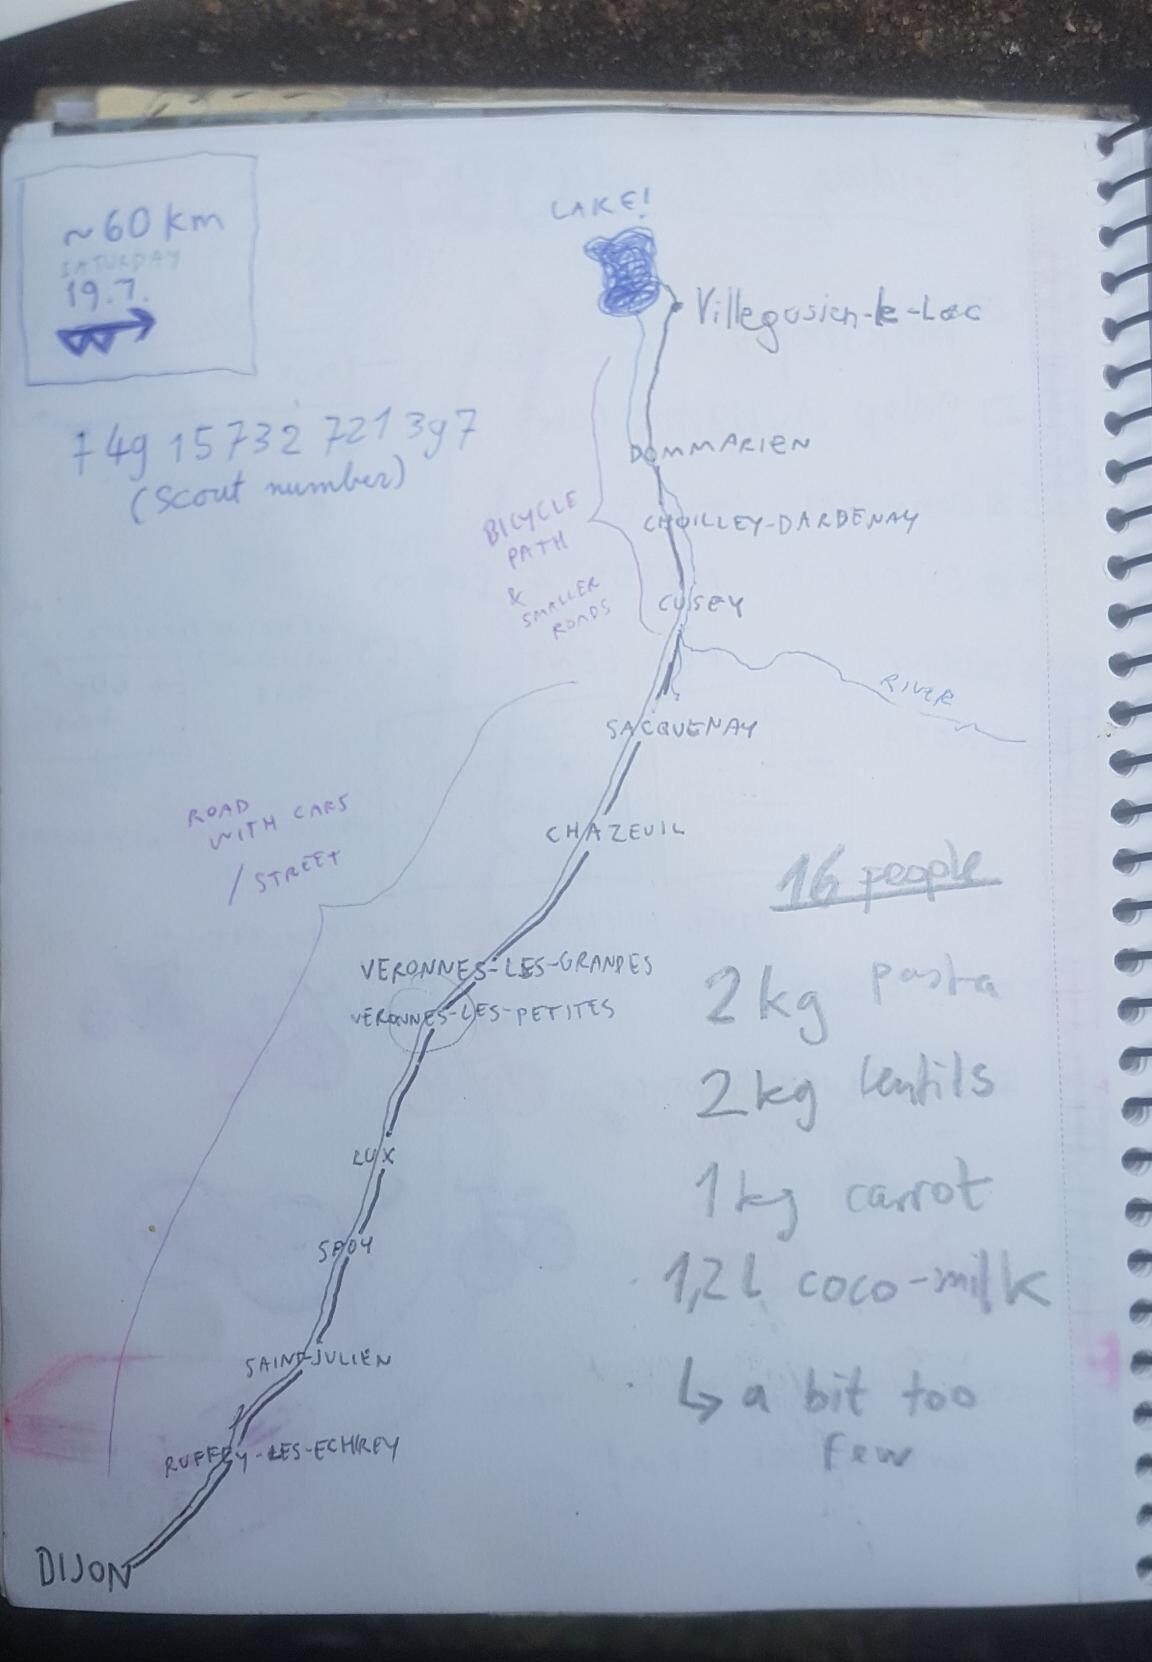 ~60 km
SATURDAY
19.7.
LAKE!
Villegusien-le-Lac
+49 15732 721397
(scout number)
DOMMARIEN
BICYCLE
PATH
&
SMALLER
ROADS
CHOILLEY-DARDENAY
CUSEY
RIVER
SACQUENAY
ROAD
WITH CARS
/ STREET
CHAZEUIL
16 people
VERONNES-LES-GRANDES
VERONNES-LES-PETITES
2 kg pasta
2 kg lentils
1 kg carrot
1,2 l coco-milk
↳ a bit too
few
LUX
SPOY
SAINT-JULIEN
RUFFEY-LES-ECHIREY
DIJON